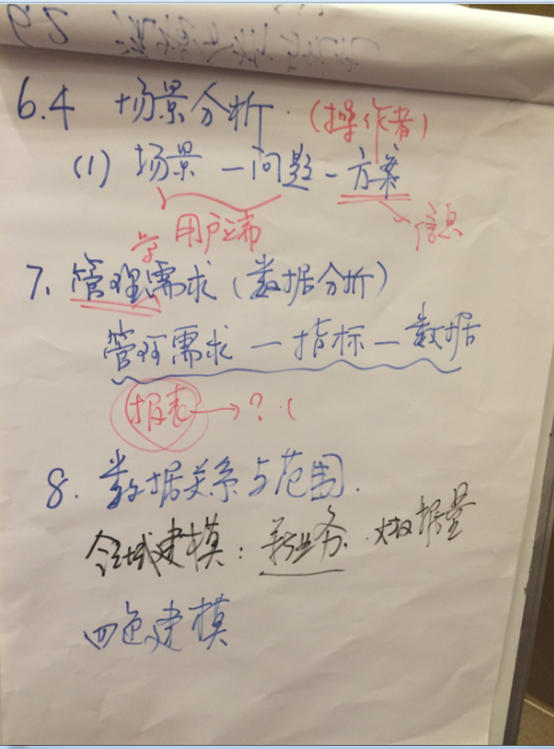 6.4 场景分析.(操作者)
(1) 场景 — 问题 — 方案
用户端
信息
7. 管理需求(数据分析)
管理需求 — 指标 — 数据
报表 → ? (
8. 数据关系与范围.
领域建模: 新业务. 数据量
四色建模